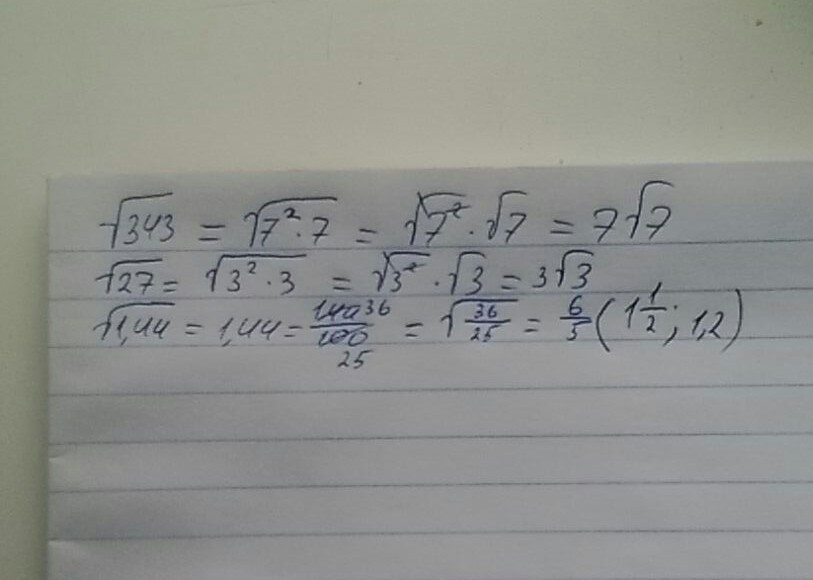 √343 = √7²·7 = √7²·√7 = 7√7
√27 = √3²·3 = √3²·√3 = 3√3
√1,44 = 1,44 = 144/100 36/25 = √36/25 = 6/5 (1 1/2; 1,2)